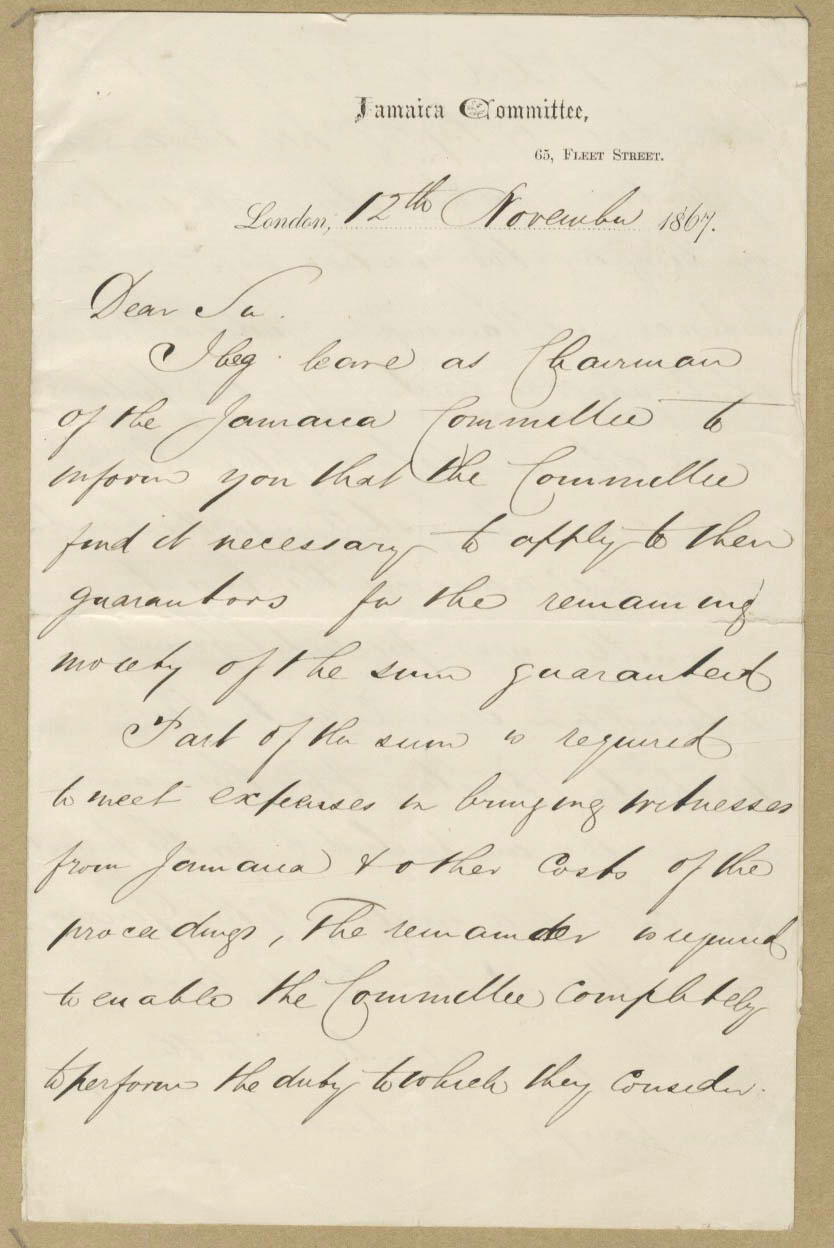 Jamaica Committee,
65, Fleet Street.
London, 12th November 1867.
Dear Sir.
I beg leave as Chairman
of the Jamaica Committee to
inform you that the Committee
find it necessary to apply to their
guarantors for the remaining
moiety of the sum guaranteed
Part of the sum is required
to meet expenses in bringing witnesses
from Jamaica & other costs of the
proceedings, The remainder is required
to enable the Committee completely
to perform the duty to which they consider.